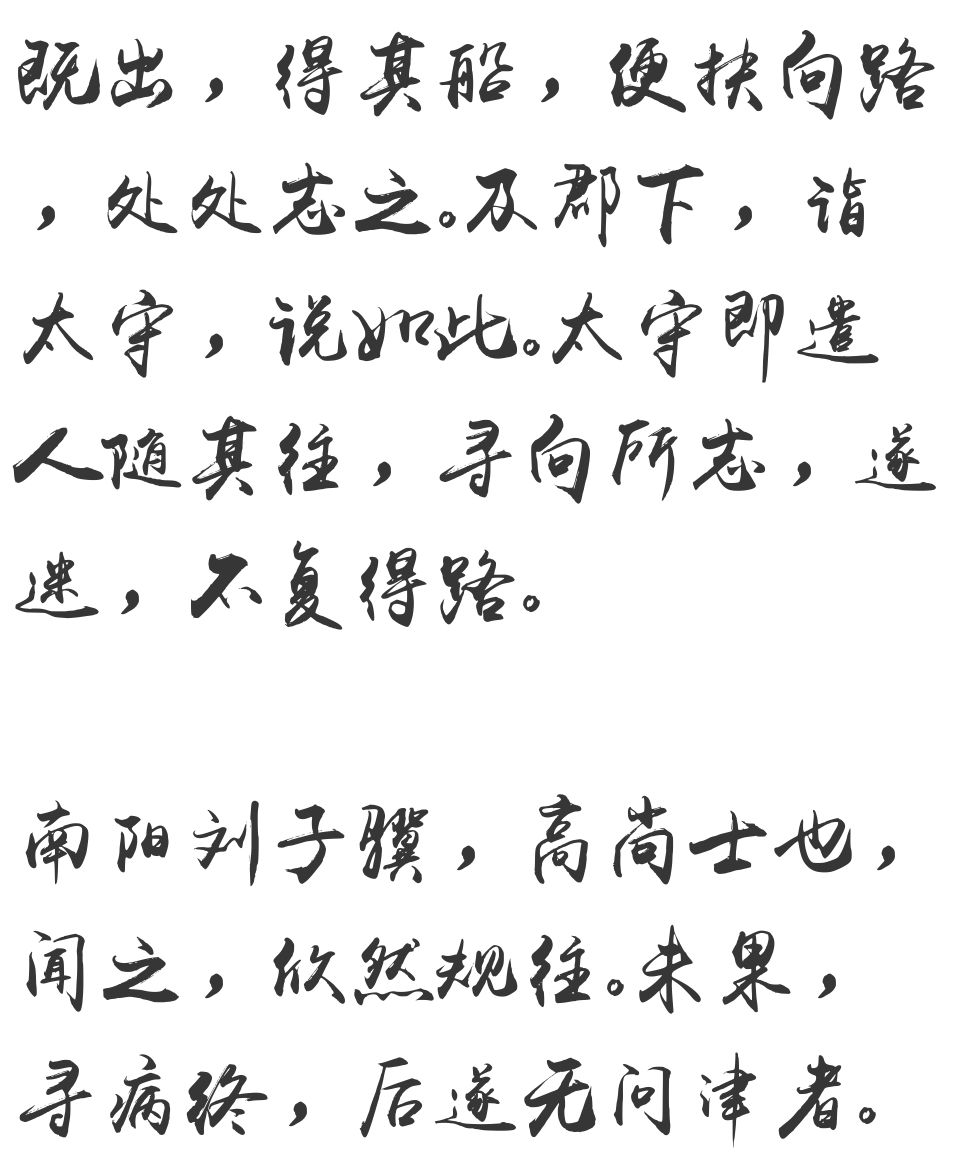 既出，得其船，便扶向路
，处处志之。及郡下，诣
太守，说如此。太守即遣
人随其往，寻向所志，遂
迷，不复得路。
南阳刘子骥，高尚士也，
闻之，欣然规往。未果，
寻病终，后遂无问津者。